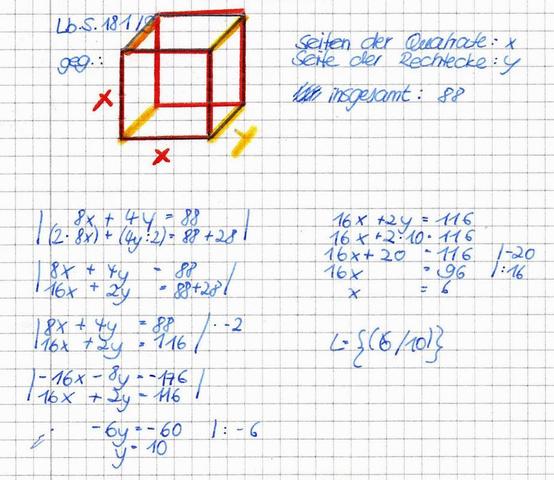 Lb. S. 181/9
geg.:
x
x
y
Seiten der Quadrate: x
Seite der Rechtecke: y
insgesamt: 88
| 8x + 4y = 88 |
| (2 · 8x) + (4y : 2) = 88 + 28 |
| 8x + 4y = 88 |
| 16x + 2y = 88 + 28 |
| 8x + 4y = 88 | · -2
| 16x + 2y = 116 |
| -16x - 8y = -176 |
| 16x + 2y = 116 |
-6y = -60 | : -6
y = 10
16x + 2y = 116
16x + 2 · 10 = 116
16x + 20 = 116 | -20
16x = 96 | : 16
x = 6
L = {(6/10)}